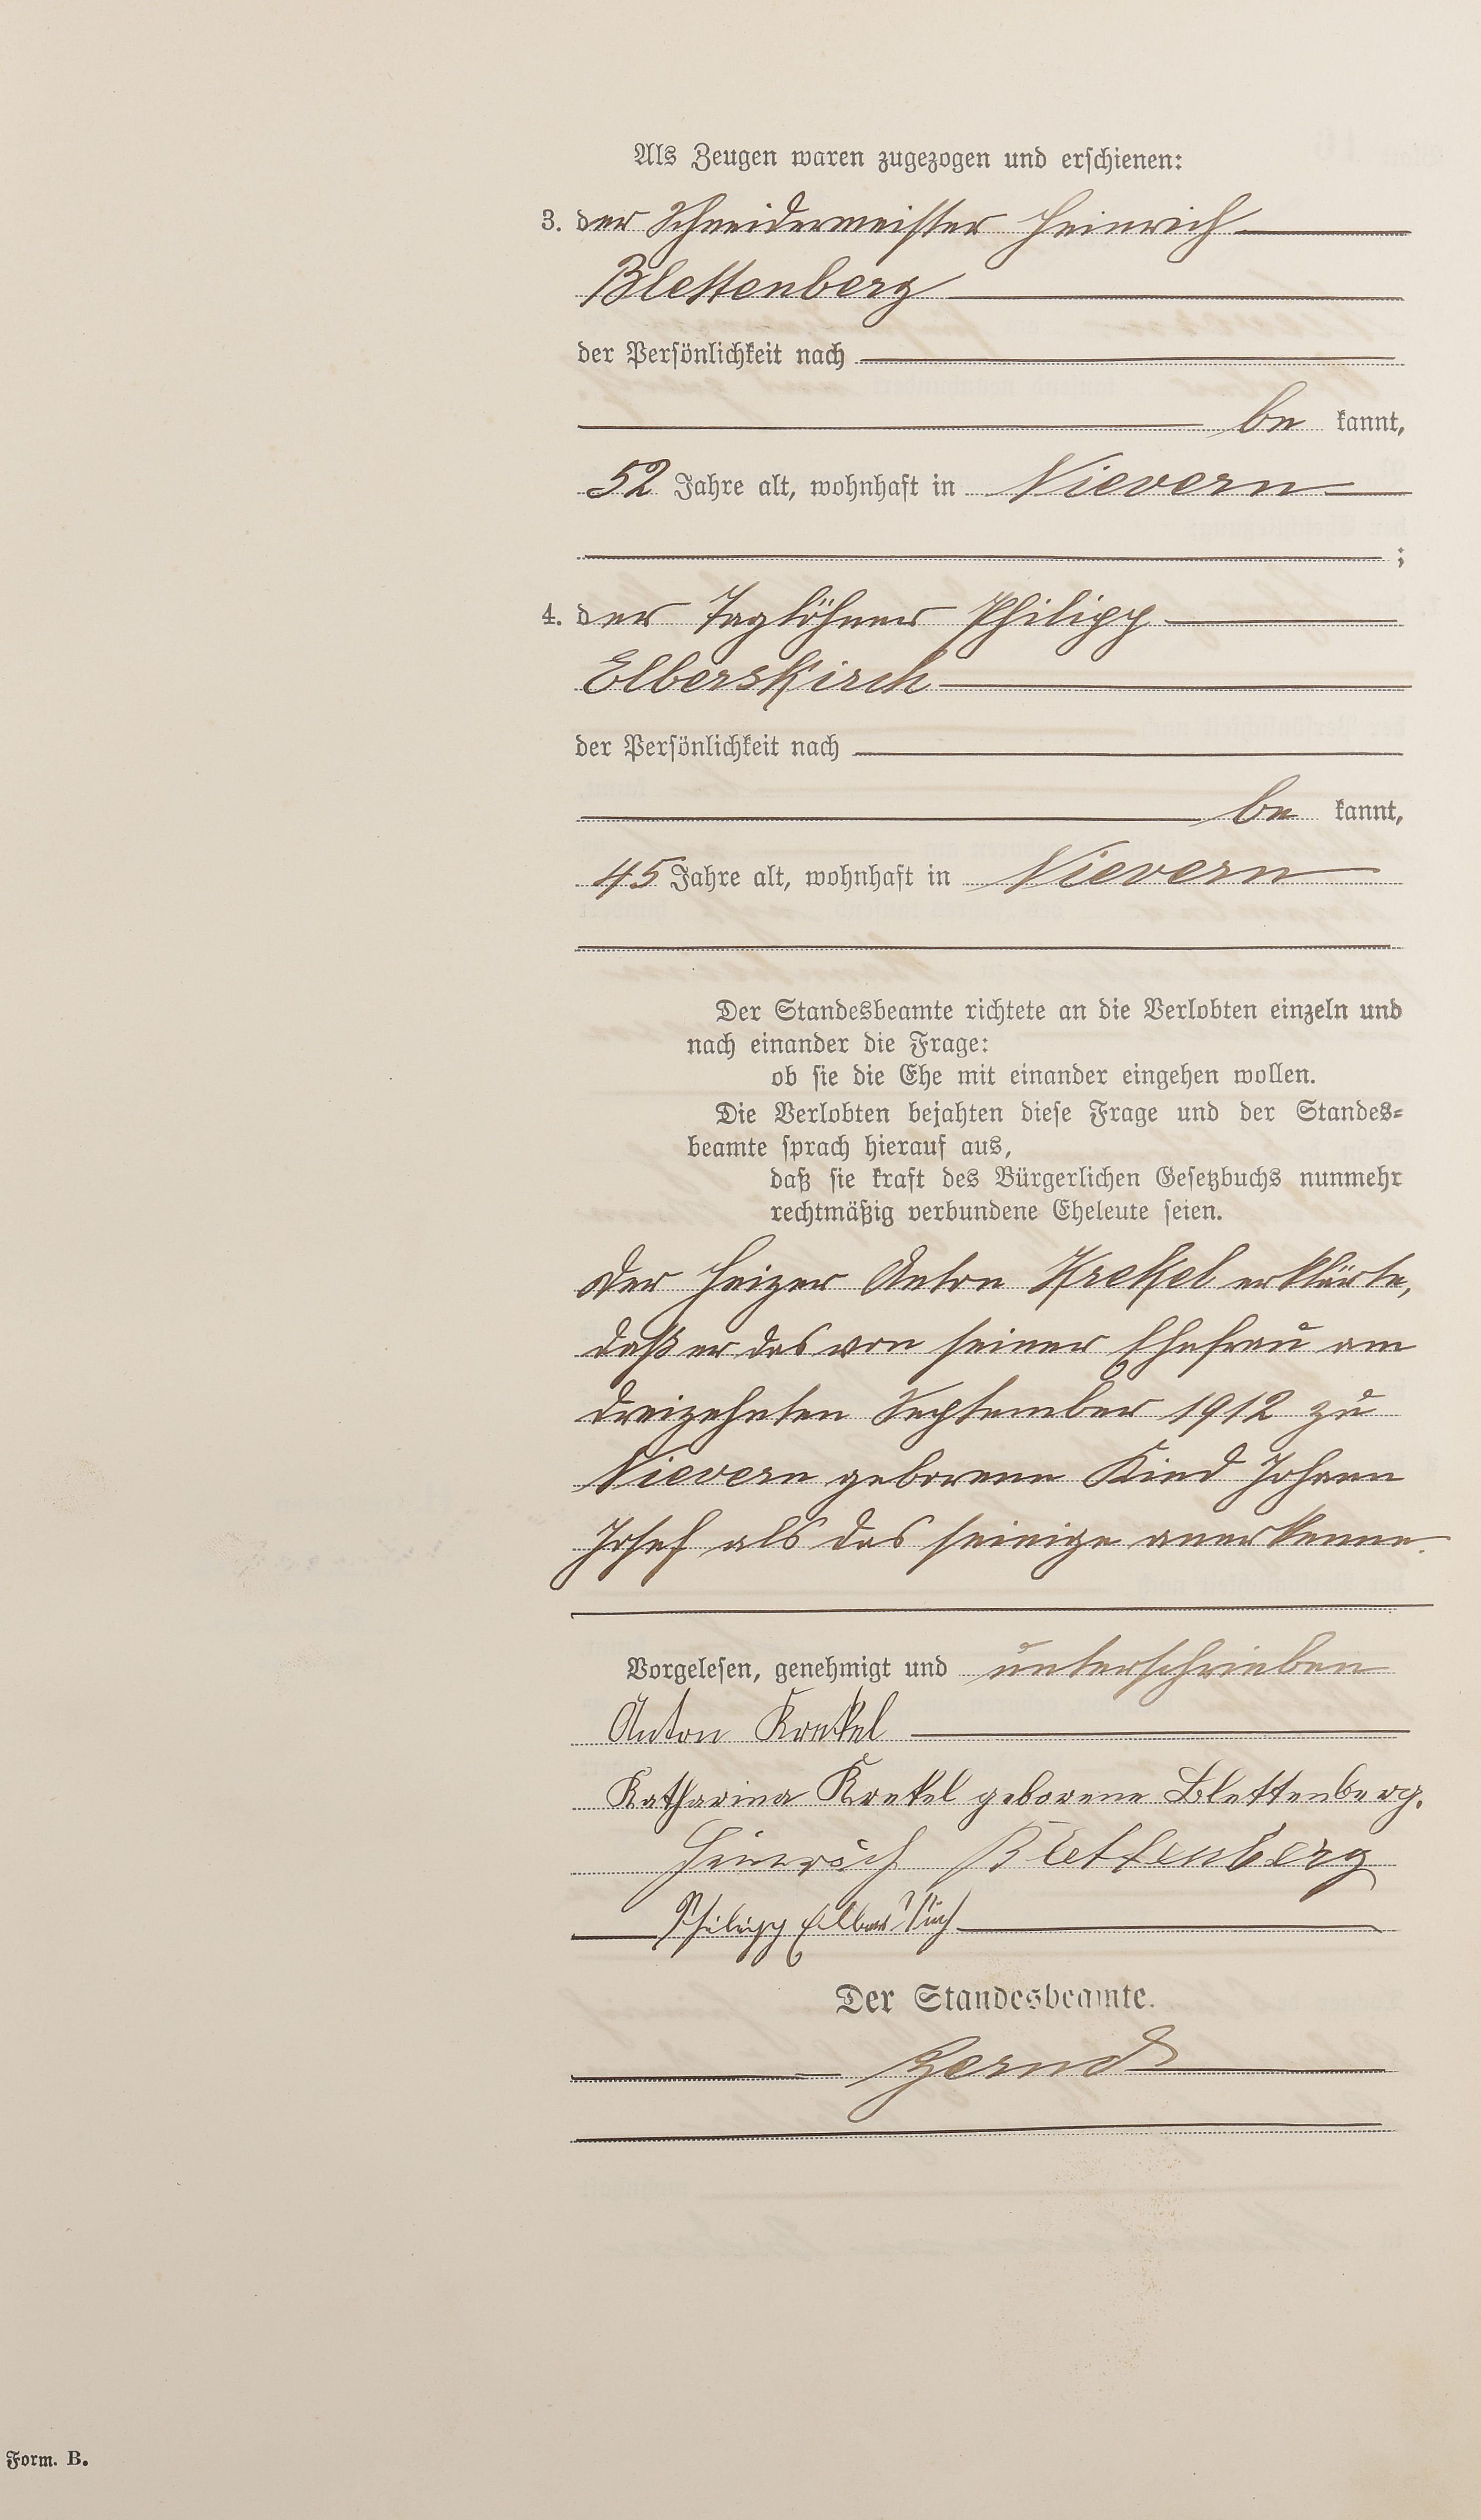 Als Zeugen waren zugezogen und erschienen:
3. der Schneidermeister Heinrich
Blettenberg
der Persönlichkeit nach
be kannt,
52 Jahre alt, wohnhaft in Nievern
;
4. der Taglöhner Philipp
Elberskirch
der Persönlichkeit nach
be kannt,
45 Jahre alt, wohnhaft in Nievern
Der Standesbeamte richtete an die Verlobten einzeln und
nach einander die Frage:
ob sie die Ehe mit einander eingehen wollen.
Die Verlobten bejahten diese Frage und der Standes-
beamte sprach hierauf aus,
daß sie kraft des Bürgerlichen Gesetzbuchs nunmehr
rechtmäßig verbundene Eheleute seien.
Der Heizer Anton Krekel erklärte,
daß er das von seiner Ehefrau am
dreizehnten September 1912 zu
Nievern geborene Kind Johann
Josef als das seinige anerkenne.
Vorgelesen, genehmigt und unterschrieben
Anton Krekel
Katharina Krekel geborene Blettenberg.
Heinrich Blettenberg
Philipp Elberskirch
Der Standesbeamte.
Form. B.